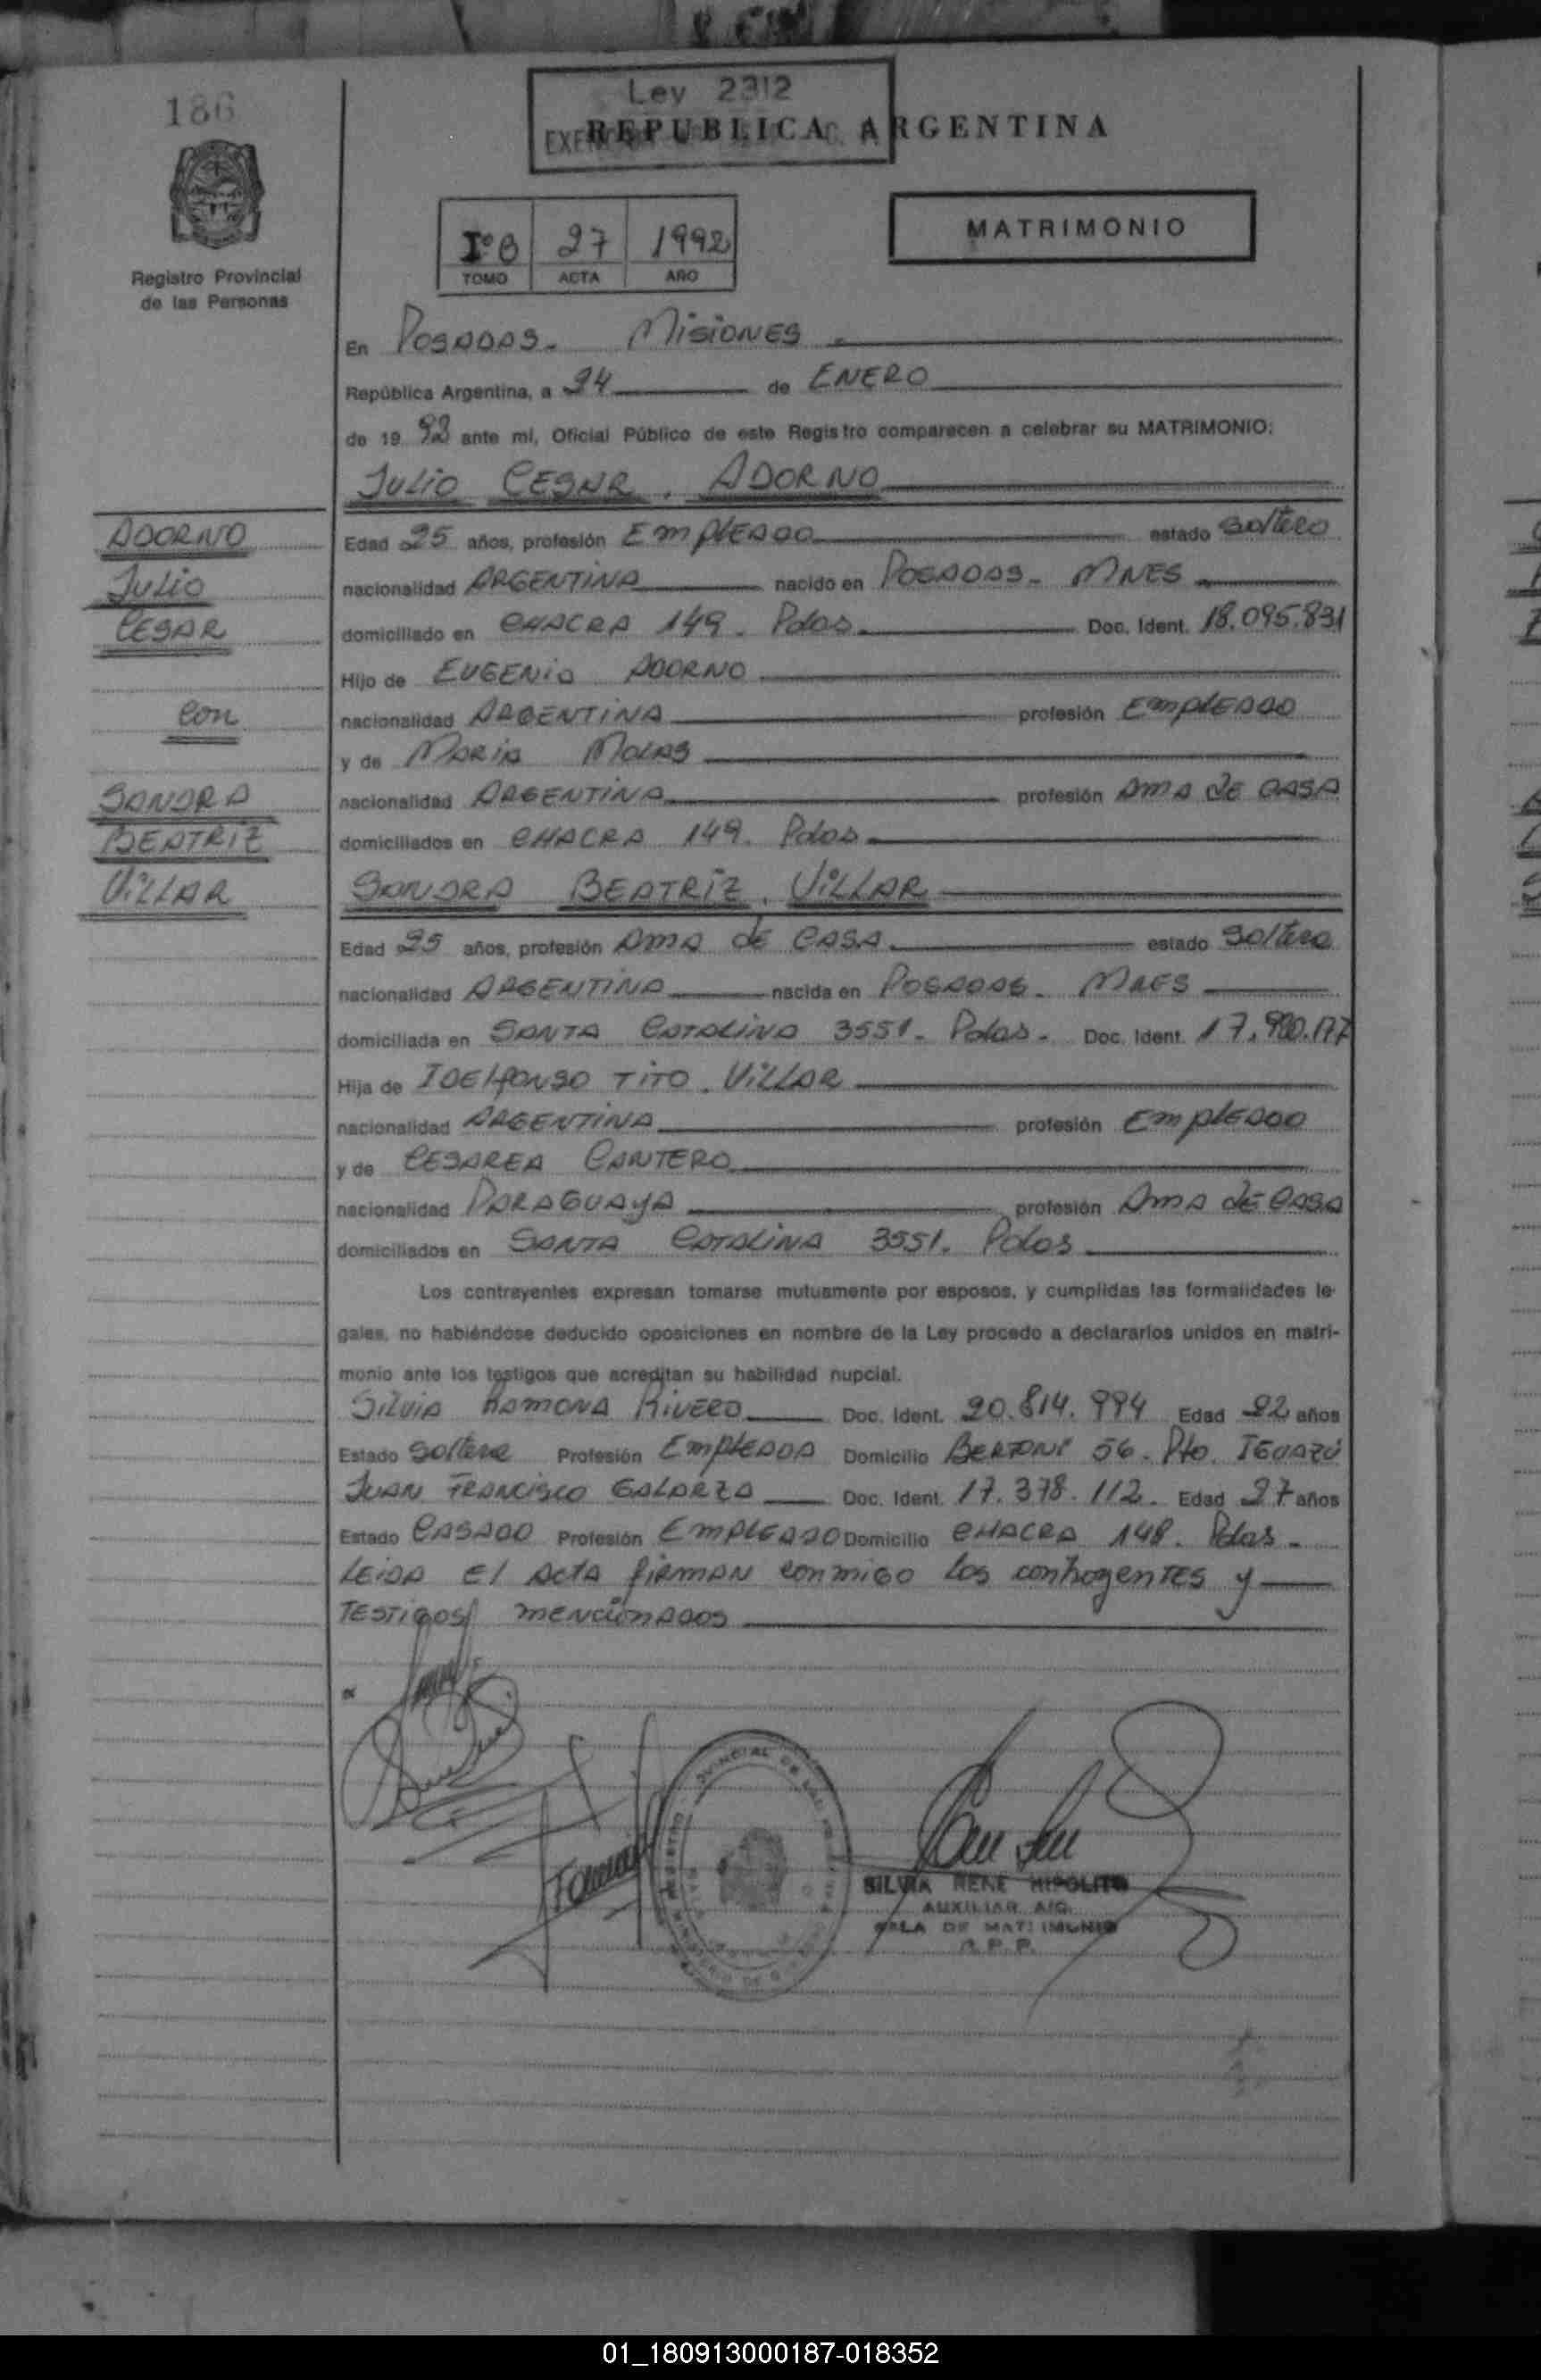 186
Ley 2312
REPUBLICA ARGENTINA
Registro Provincial
de las Personas
Iº B 27 1992
TOMO ACTA AÑO
MATRIMONIO
En POSADAS. MISIONES
República Argentina, a 24 de ENERO
de 19 92 ante mi, Oficial Público de este Registro comparecen a celebrar su MATRIMONIO:
JULIO CESAR. ADORNO
ADORNO
JULIO
CESAR
con
SANDRA
BEATRIZ
VILLAR
Edad 25 años, profesión EMPLEADO estado soltero
nacionalidad ARGENTINA nacido en POSADAS. MNES
domiciliado en CHACRA 149. Pdas. Doc. Ident. 18.095.831
Hijo de EUGENIO ADORNO
nacionalidad ARGENTINA profesión EMPLEADO
y de MARIA MOLAS
nacionalidad ARGENTINA profesión AMA DE CASA
domiciliados en CHACRA 149. Pdas
SANDRA BEATRIZ. VILLAR
Edad 25 años, profesión AMA DE CASA. estado soltera
nacionalidad ARGENTINA nacida en POSADAS. MNES
domiciliada en SANTA CATALINA 3551. Pdas. Doc. Ident. 17.
Hija de IDELFONSO TITO. VILLAR
nacionalidad ARGENTINA profesión EMPLEADO
y de CESAREA CANTERO
nacionalidad PARAGUAYA profesión AMA DE CASA
domiciliados en SANTA CATALINA 3551. Pdas
Los contrayentes expresan tomarse mutuamente por esposos, y cumplidas las formalidades le-
gales, no habiéndose deducido oposiciones en nombre de la Ley procedo a declararlos unidos en matri-
monio ante los testigos que acreditan su habilidad nupcial.
SILVIA RAMONA RIVERO Doc. Ident. 20.814.994 Edad 22 años
Estado soltera Profesión EMPLEADA Domicilio BERTONI 56. Pto. IGUAZÚ
JUAN FRANCISCO GALARZA Doc. Ident. 17.378.112. Edad 27 años
Estado CASADO Profesión EMPLEADO Domicilio CHACRA 148. Pdas.
LEIDA El ACTA firman conmigo los contrayentes y
TESTIGOS mencionados
SILVIA RENE HIPOLITO
AUXILIAR
SALA DE MATRIMONIO
R. P. P.
01_180913000187-018352